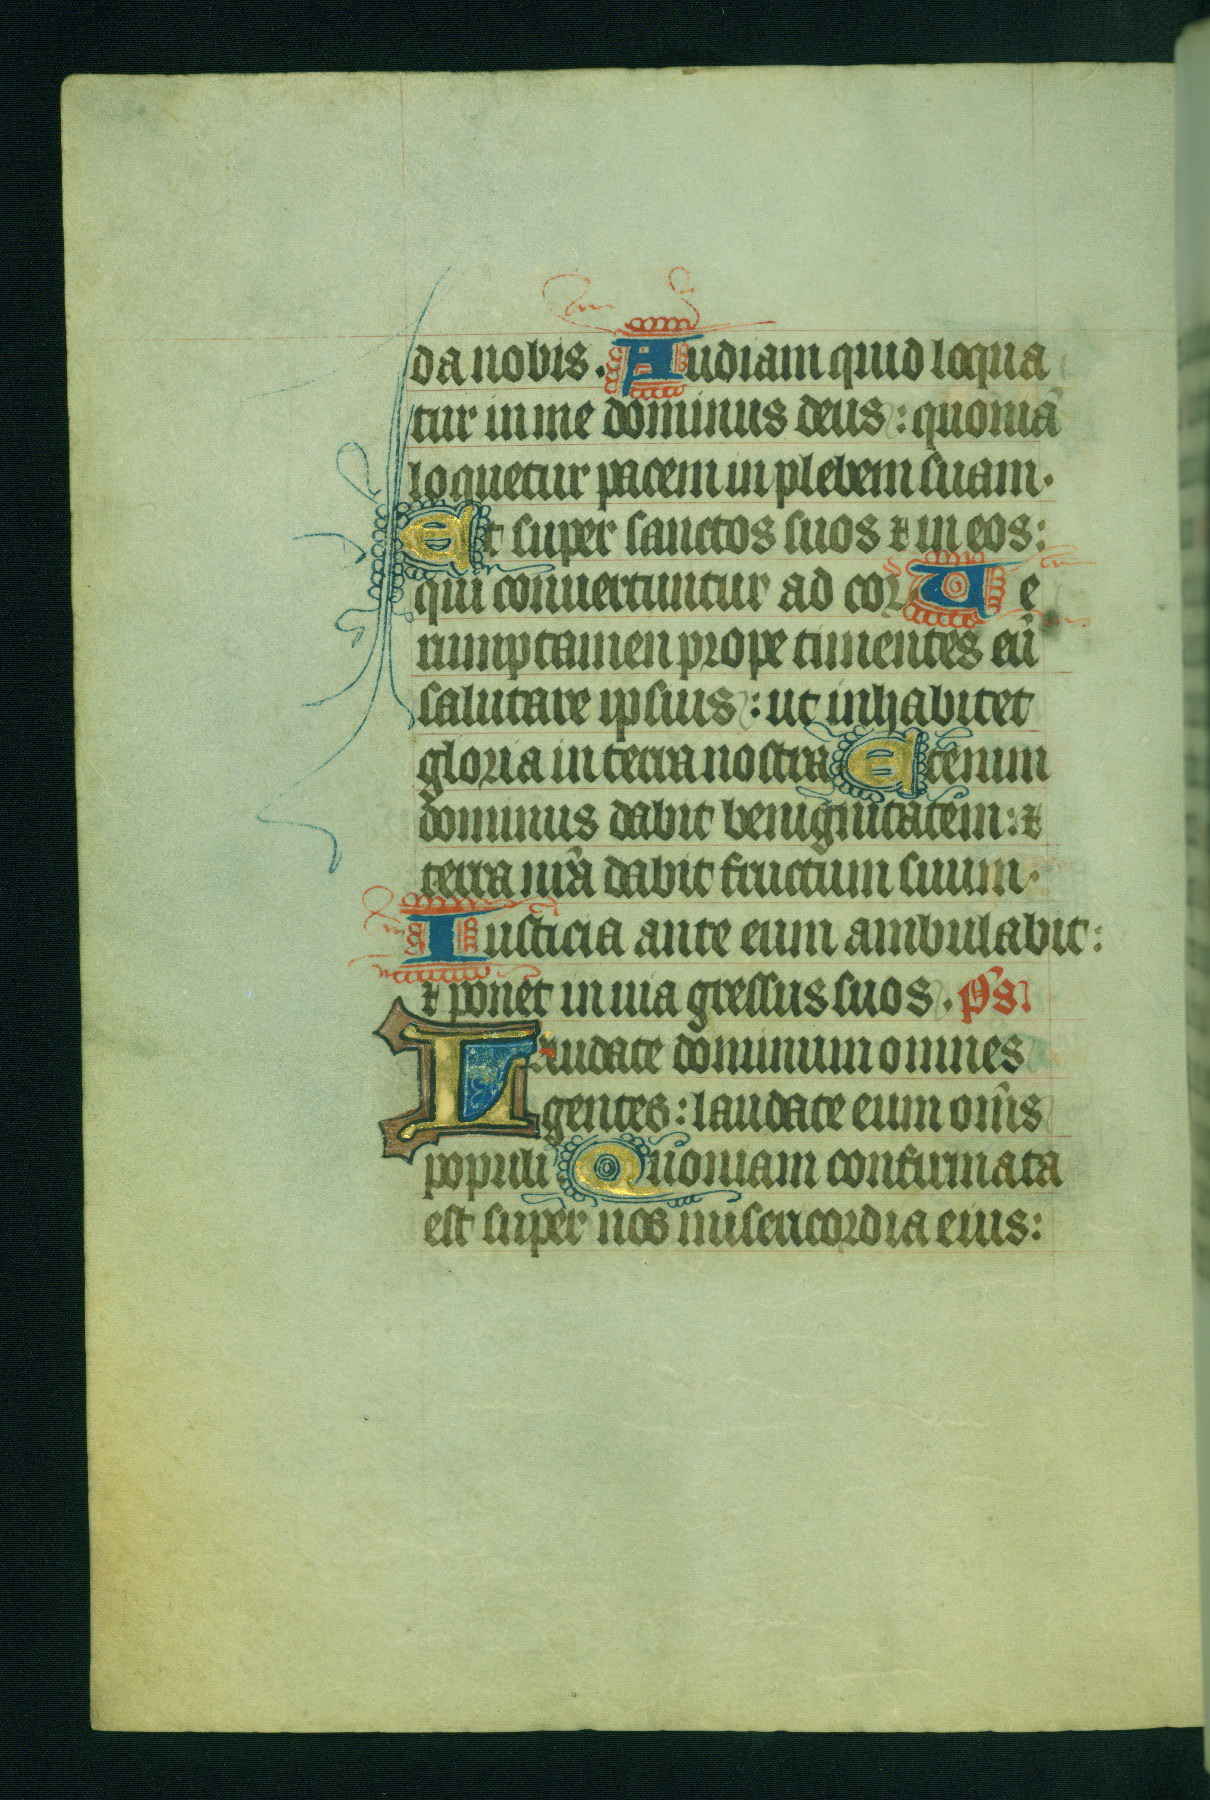 da nobis. Audiam quid loqua
tur in me dominus deus: quoniã
loquetur pacem in plebem suam.
Et super sanctos suos ⁊ in eos:
qui conuertuntur ad cor Ue
rumptamen prope timentes eũ
salutare ipsius: ut inhabitet
gloria in terra nostra Etenim
dominus dabit benignitatem: ⁊
terra nr̃a dabit fructum suum.
Iusticia ante eum ambulabit:
⁊ ponet in uia gressus suos. p̃s
Laudate dominum omnes
gentes: laudate eum om̃s
populi. Quoniam confirmata
est super nos misericordia eius: